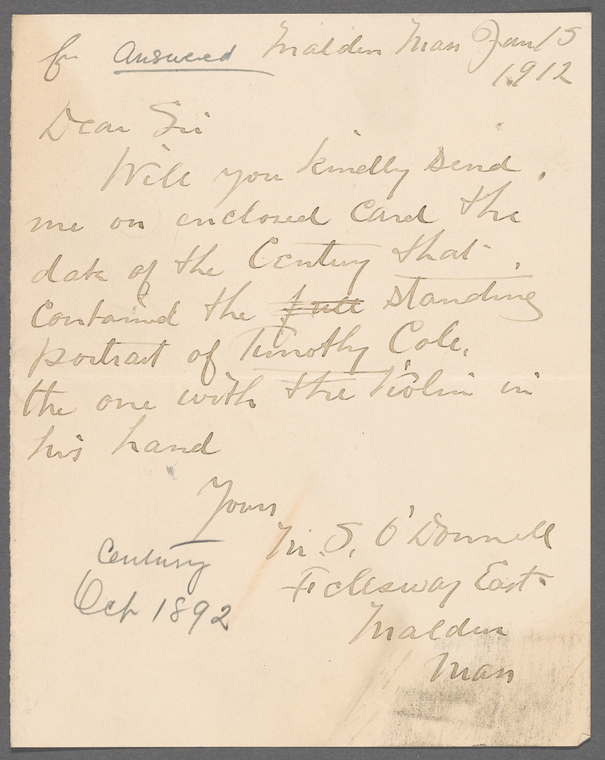 Answered Malden Mass Jan 15
1912
Dear Sir
Will you kindly send
me on enclosed card the
date of the Century that
contained the full standing
portrait of Timothy Cole,
the one with the violin in
his hand
Yours
M. S. O'Donnell
Fellsway East
Malden
Mass
Century
Oct 1892